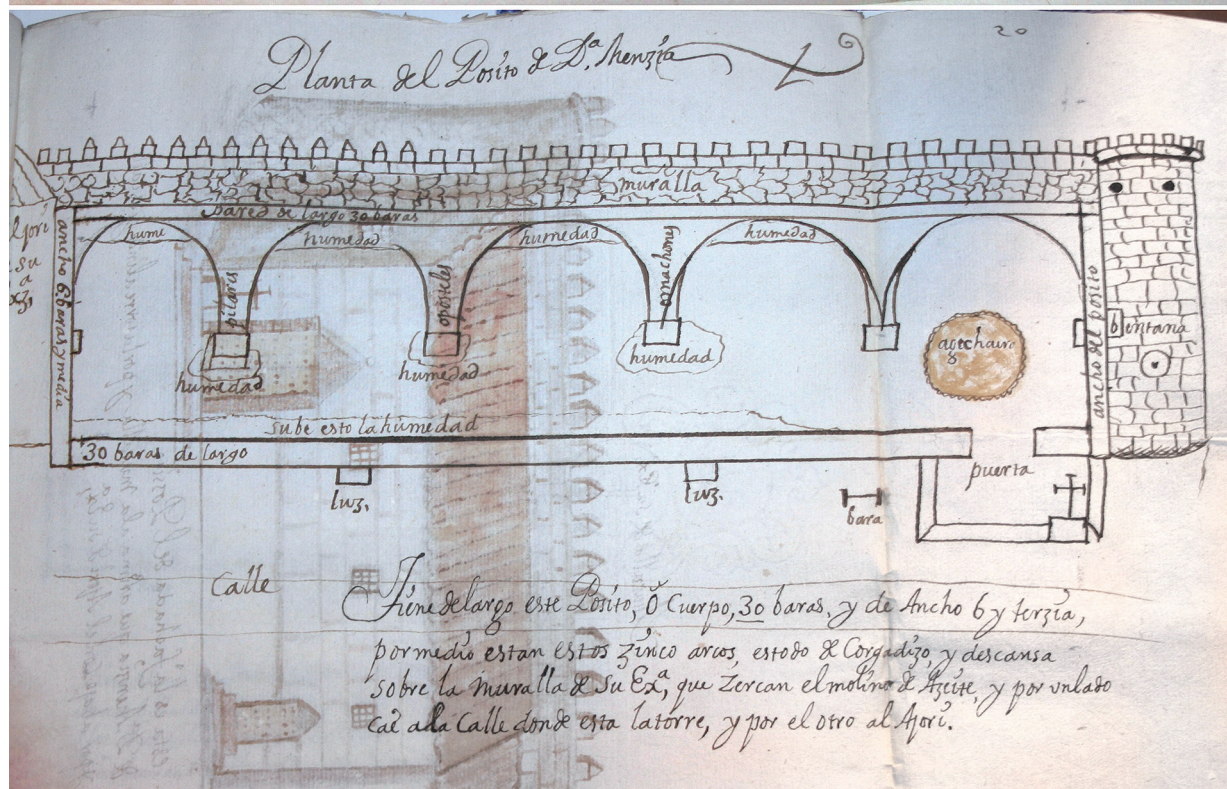 Planta del Posito de D.ª Menzia
20
muralla
pared de largo 30 baras
hume
humedad
humedad
humedad
ancho 6 baras y media
pilares
oposteles
o machones
humedad
humedad
humedad
ancho del posito
bentana
sube esto la humedad
30 baras de largo
puerta
luz.
luz.
bara
Calle
Tiene de largo este Posito, ó Cuerpo, 30 baras, y de Ancho 6 y terzia,
por medio estan estos zinco arcos, es todo de Corgadizo, y descansa
sobre la muralla de su Exª, que zercan el molino de Azeite, y por un lado
cae a la Calle donde esta la torre, y por el otro al Ajori.